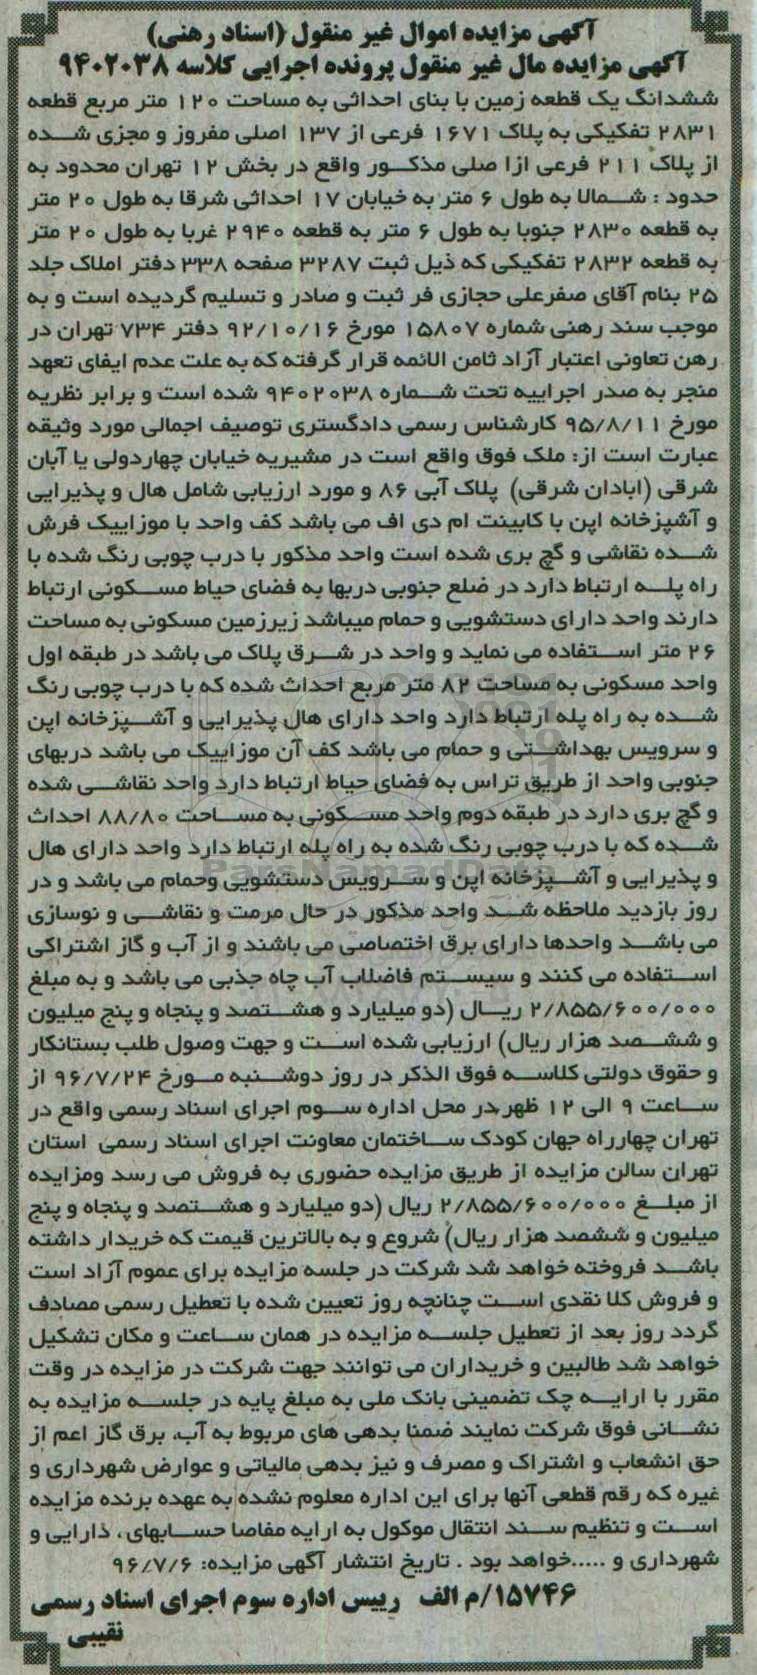 آگهی مزایده اموال غیر منقول (اسناد رهنی)
آگهی مزایده مال غیر منقول پرونده اجرایی کلاسه ۹۴۰۲۰۳۸
ششدانگ یک قطعه زمین با بنای احداثی به مساحت ۱۲۰ متر مربع قطعه
۲۸۳۱ تفکیکی به پلاک ۱۶۷۱ فرعی از ۱۳۷ اصلی مفروز و مجزی شده
از پلاک ۲۱۱ فرعی ازا صلی مذکور واقع در بخش ۱۲ تهران محدود به
حدود : شمالا به طول ۶ متر به خیابان ۱۷ احداثی شرقا به طول ۲۰ متر
به قطعه ۲۸۳۰ جنوبا به طول ۶ متر به قطعه ۲۹۴۰ غربا به طول ۲۰ متر
به قطعه ۲۸۳۲ تفکیکی که ذیل ثبت ۳۲۸۷ صفحه ۳۳۸ دفتر املاک جلد
۲۵ بنام آقای صفرعلی حجازی فر ثبت و صادر و تسلیم گردیده است و به
موجب سند رهنی شماره ۱۵۸۰۷ مورخ ۹۲/۱۰/۱۶ دفتر ۷۳۴ تهران در
رهن تعاونی اعتبار آزاد ثامن الائمه قرار گرفته که به علت عدم ایفای تعهد
منجر به صدر اجراییه تحت شماره ۹۴۰۲۰۳۸ شده است و برابر نظریه
مورخ ۹۵/۸/۱۱ کارشناس رسمی دادگستری توصیف اجمالی مورد وثیقه
عبارت است از: ملک فوق واقع است در مشیریه خیابان چهاردولی یا آبان
شرقی (ابادان شرقی) پلاک آبی ۸۶ و مورد ارزیابی شامل هال و پذیرایی
و آشپزخانه اپن با کابینت ام دی اف می باشد کف واحد با موزاییک فرش
شده نقاشی و گچ بری شده است واحد مذکور با درب چوبی رنگ شده با
راه پله ارتباط دارد در ضلع جنوبی دربها به فضای حیاط مسکونی ارتباط
دارند واحد دارای دستشویی و حمام میباشد زیرزمین مسکونی به مساحت
۲۶ متر استفاده می نماید و واحد در شرق پلاک می باشد در طبقه اول
واحد مسکونی به مساحت ۸۲ متر مربع احداث شده که با درب چوبی رنگ
شده به راه پله ارتباط دارد واحد دارای هال پذیرایی و آشپزخانه اپن
و سرویس بهداشتی و حمام می باشد کف آن موزاییک می باشد دربهای
جنوبی واحد از طریق تراس به فضای حیاط ارتباط دارد واحد نقاشی شده
و گچ بری دارد در طبقه دوم واحد مسکونی به مساحت ۸۸/۸۰ احداث
شده که با درب چوبی رنگ شده به راه پله ارتباط دارد واحد دارای هال
و پذیرایی و آشپزخانه اپن و سرویس دستشویی وحمام می باشد و در
روز بازدید ملاحظه شد واحد مذکور در حال مرمت و نقاشی و نوسازی
می باشد واحدها دارای برق اختصاصی می باشند و از آب و گاز اشتراکی
استفاده می کنند و سیستم فاضلاب آب چاه جذبی می باشد و به مبلغ
۲/۸۵۵/۶۰۰/۰۰۰ ریال (دو میلیارد و هشتصد و پنجاه و پنج میلیون
و ششصد هزار ریال) ارزیابی شده است و جهت وصول طلب بستانکار
و حقوق دولتی کلاسه فوق الذکر در روز دوشنبه مورخ ۹۶/۷/۲۴ از
ساعت ۹ الی ۱۲ ظهر در محل اداره سوم اجرای اسناد رسمی واقع در
تهران چهارراه جهان کودک ساختمان معاونت اجرای اسناد رسمی استان
تهران سالن مزایده از طریق مزایده حضوری به فروش می رسد ومزایده
از مبلغ ۲/۸۵۵/۶۰۰/۰۰۰ ریال (دو میلیارد و هشتصد و پنجاه و پنج
میلیون و ششصد هزار ریال) شروع و به بالاترین قیمت که خریدار داشته
باشد فروخته خواهد شد شرکت در جلسه مزایده برای عموم آزاد است
و فروش کلا نقدی است چنانچه روز تعیین شده با تعطیل رسمی مصادف
گردد روز بعد از تعطیل جلسه مزایده در همان ساعت و مکان تشکیل
خواهد شد طالبین و خریداران می توانند جهت شرکت در مزایده در وقت
مقرر با ارایه چک تضمینی بانک ملی به مبلغ پایه در جلسه مزایده به
نشانی فوق شرکت نمایند ضمنا بدهی های مربوط به آب، برق گاز اعم از
حق انشعاب و اشتراک و مصرف و نیز بدهی مالیاتی و عوارض شهرداری و
غیره که رقم قطعی آنها برای این اداره معلوم نشده به عهده برنده مزایده
است و تنظیم سند انتقال موکول به ارایه مفاصا حسابهای، دارایی و
شهرداری و .....خواهد بود . تاریخ انتشار آگهی مزایده: ۹۶/۷/۶
۱۵۷۴۶/م الف رییس اداره سوم اجرای اسناد رسمی
نقیبی